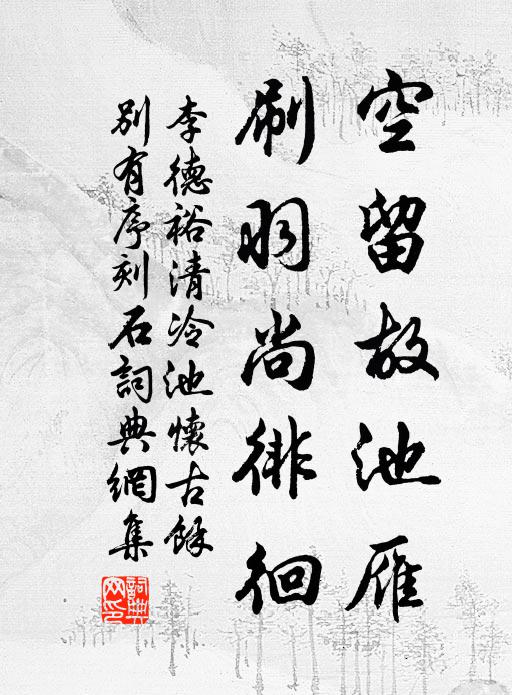 空留故池雁
刷羽尚徘徊
李德裕清冷池懷古餘
別有序刻石詞典網集
詞典網印